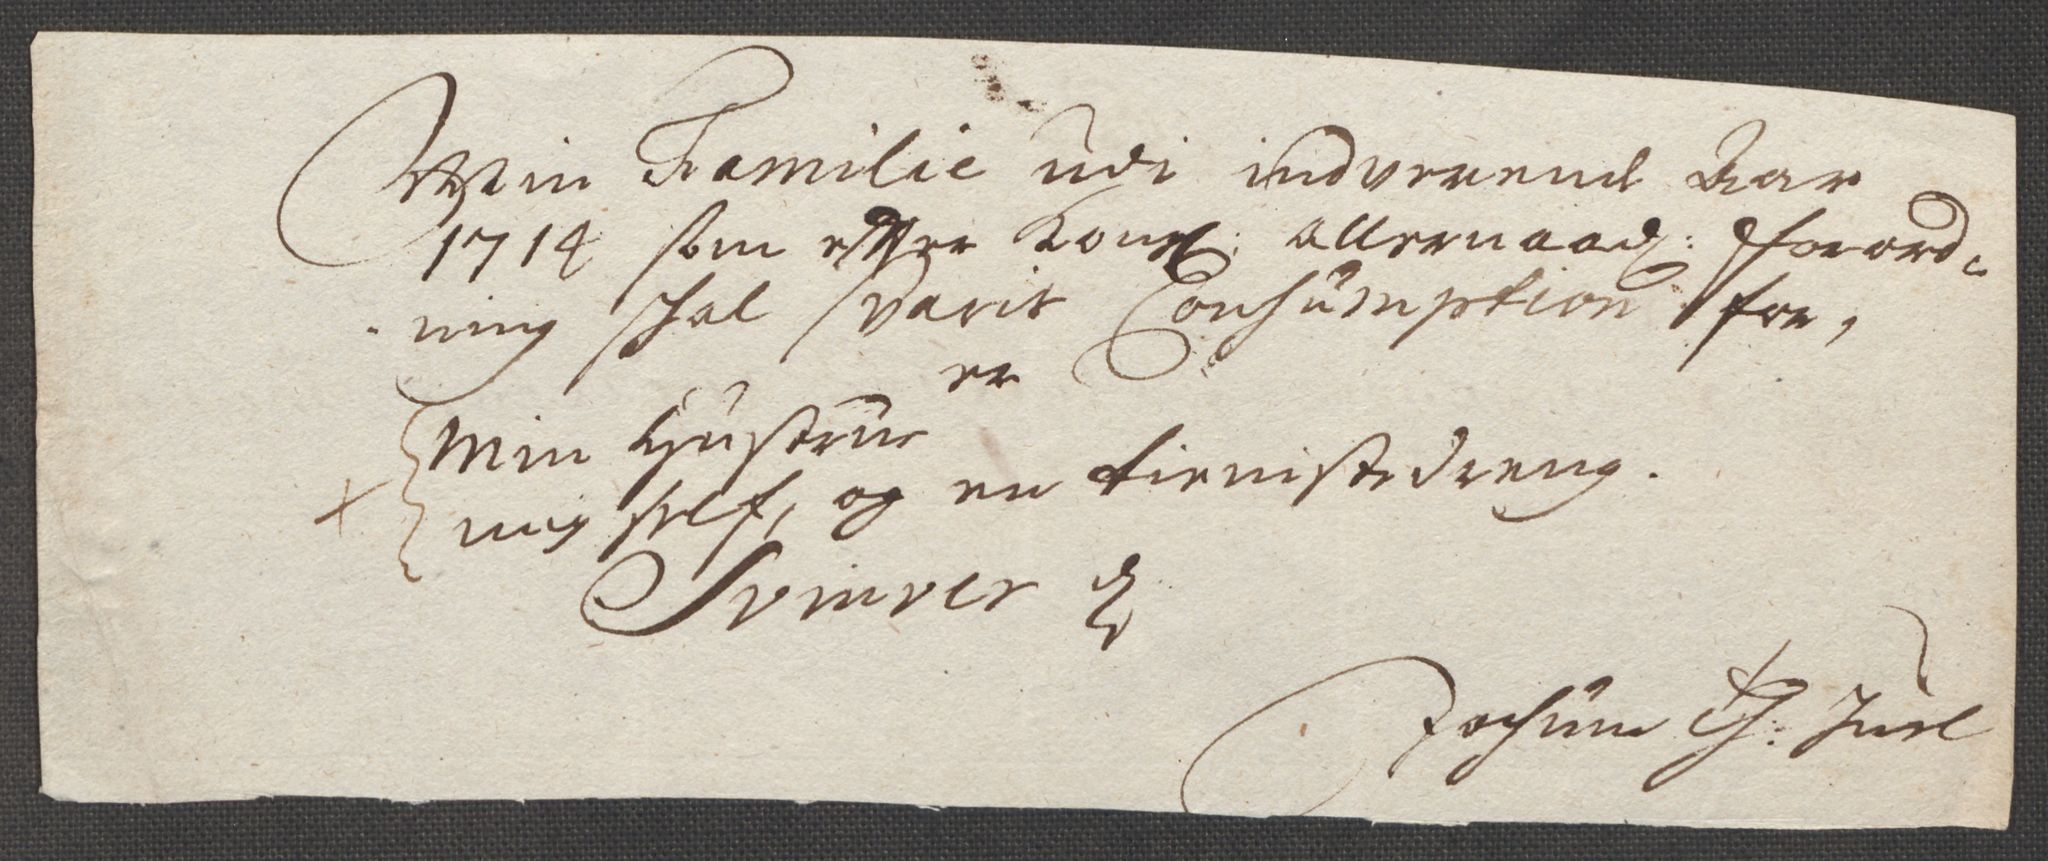 Min Familie udi indverend Aar
1714 som efter Kongl: allernaadg: Forord-
ning schal svarit Consumption fra,
er
Min Hustrue
mig self, og en tienistedreng.
Svinver
Jochum Juel